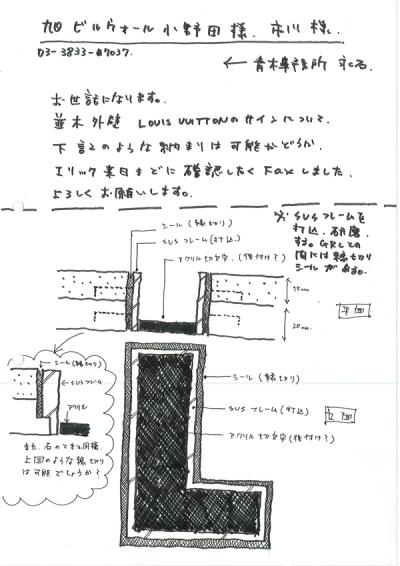 旭ビルウォール 小野田様. 市川様.
03-3833-
← 青木事務所
お世話になります。
並木外壁 LOUIS VUITTONのサインについて.
下記のような納まりは可能かどうか.
エリック来日までに確認したくFaxしました.
よろしくお願いします。
※ SUSフレームを
打込、研磨
する。GRCとの
間には縁切り
シールがある。
シール(縁切り)
SUSフレーム(打込)
アクリル切文字(後付け?)
15mm
20mm
平面
シール(縁切り)
SUSフレーム
アクリル
また、石のときと同様、
上図のような縁切り
は可能でしょうか?
シール(縁切り)
SUSフレーム(打込)
立面
アクリル切文字(後付け?)